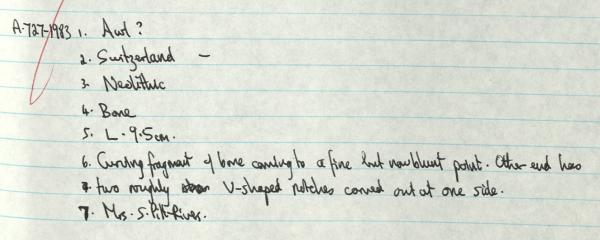 A.727-1983 1. Awl ?
2. Switzerland –
3. Neolithic
4. Bone
5. L. 9.5cm.
6. Curving fragment of bone coming to a fine but now blunt point. Other end has
two roughly V-shaped notches carved out at one side.
7. Mrs. S. Pitt-Rivers.